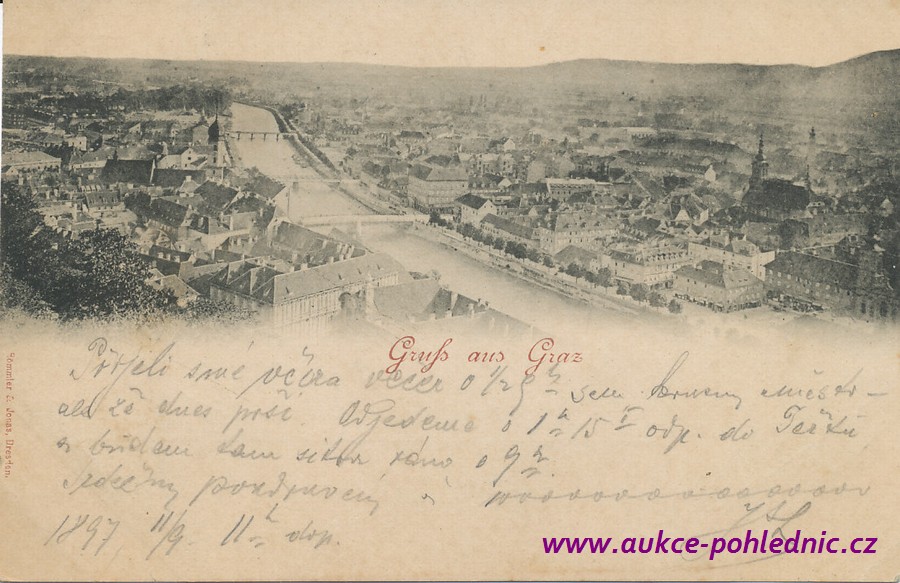 Gruß aus Graz
Přijeli sme včera večer o 1/2 9 h sem
ale že dnes prší. Odjedeme o 1 h 15 odp. do
a budem tam ráno o 9 h
Srdečný pozdravení
1897 11/9. 11 h dop.
Römmler & Jonas, Dresden.
www.aukce-pohlednic.cz